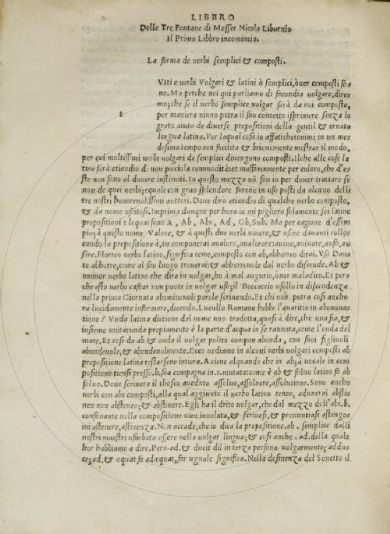 LIBBRO
Delle Tre Fontane di Messer Nicolo Liburnio
Il Primo Libbro incomincia.
La forma de uerbi semplici & composti.
VTti e uerbi Volgari & latini ò semplici, ò uer composti so=
no. Ma perche noi qui parliamo di fecondia uolgare, dires
mo; che se il uerbo semplice uolgar sarà da noi composto,
per maniera niuno potra il suo concetto isprimere sinza lo
grato aiuto de diuerse prepositioni della gentil & ornata
lingua latina. Per loqual cosa io affatticherommi in un me
desimo tempo con facilita & briciuemente mostrar il modo,
per cui moltissimi uerbi uolgari de semplici deuengono composti. Ilche alle cose la
tina sarà etiandio di non picciola commodita: et massimamente per coloro, che d'es
In questo mezzo nō fia io per douer trattare se
non de quei uerbi; equali con gran splendore furono in uso posti da alcuno delli
tre nostri honoreuolissimi auttori. Dono dire etiandio di qualche uerbo composto,
& da nome ussitose. Imprima dunque per hora ui mi piglierò solamente sei latine
prepositioni: lequai sono A, Ab, Abr, Ad, Ob, Sub. Ma per cagione d'essem
pio; è questo nome Valore, & à questi duo uerbi uiuere, & usare dauanti collo
cando la preposizione à, tu componerai
Horreo uerbo latino, significa temo, composto con ab, abborreo dirai. Vso Dan
te abborre, come al suo luogo trouerai: & abborreuole dal uerbo discende. Ab &
nutir uerbo latino che dira in uolgar, ho à mal augurio, ouer maledico. Et per
che esto uerbo castar non puote in uolgar
nella prima Giornata abomineuoli parole scriuendo. Et chi uoir potra cosi ancho
ra lucidamente inserirme, dicendo. Lucullo Romano hebbe l'auaritia in abomina
tione
insieme unita: unda propiamente è la parte d'acqua in se rannata, come l'onda del
mare. Et cosi da ab & onda il uolgar polito compon abonda, con suoi figliuoli
abondeuole, & abondeuolmente. Ecco uediamo in alcuni uerbi uolgari composti ab
prepositione latina restarsene intera. Auiene alquando che in ab; à uocale in com
positione tiensi presso. b. sea compagna in. s. mutata: come è ab & soluo latino fà ab
soluo. Dicio scriuera il thosco auedute assoluo, assoluere, assolutione. Sono ancho
uerbi con abs composti, alla qual aggiunto il uerbo latino teneo, adunera abstie
neo non abstenco; & abstenere. Egli ha il drito uolgar, che dal mezzo dell'abs. b.
consonante nella compositione uuoi inuolata, & scriuesi, & pronuntiasi astengo
mi astenere, astinenza. Non accade, che io dica la prepositione. ab. semplice dalli
nostri maestri usurbata essere nella uolgar lingua; & cosi anche . ad. della quale
hor habbiamo a dire. Pero-ad. & ducit del in terza persona uolgarmente; addus
ce; ad. & equat fa adequat, far uguale significa. Nella desinenza del Sonetto il